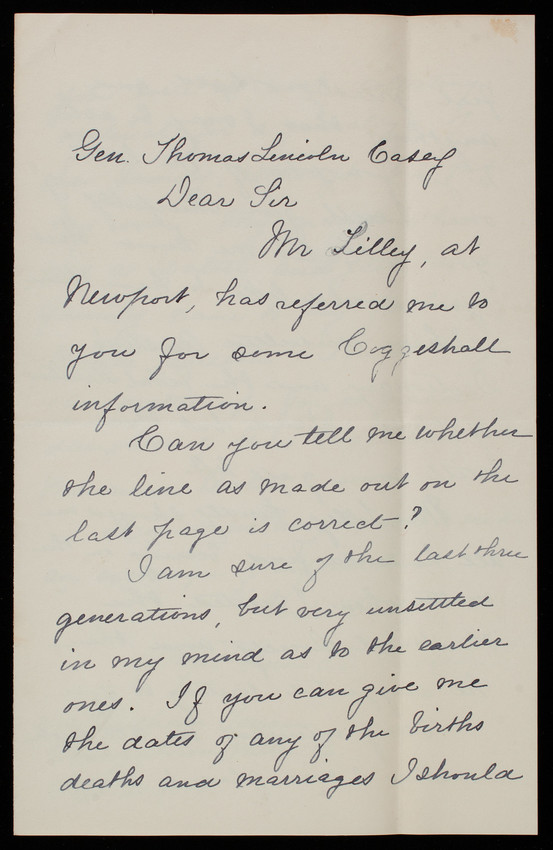 Gen. Thomas Lincoln Casey
Dear Sir
Mr Tilley, at
Newport, has referred me to
you for some Coggeshall
information.
Can you tell me whether
the line as made out on the
last page is correct?
I am sure of the last three
generations, but very unsettled
in my mind as to the earlier
ones. If you can give me
the dates of any of the births
deaths and marriages I should